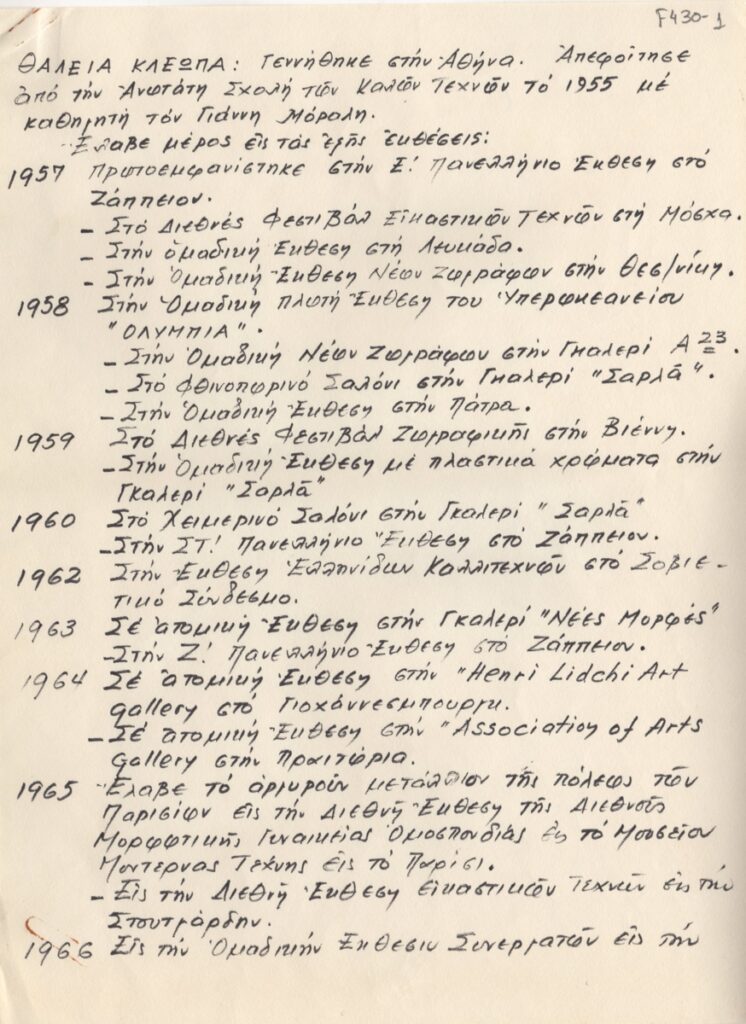 F430-1
ΘΑΛΕΙΑ ΚΛΕΩΠΑ: Γεννήθηκε στήν Ἀθήνα. Ἀπεφοίτησε
ἀπό τήν Ἀνωτάτη Σχολή τῶν Καλῶν Τεχνῶν τό 1955 μέ
καθηγητή τόν Γιάννη Μόραλη.
Ἔλαβε μέρος εἰς τάς ἑξῆς ἐκθέσεις:
1957 Πρωτοεμφανίστηκε στήν Ε! Πανελλήνιο Ἔκθεση στό
Ζάππειον.
- Στό Διεθνές Φεστιβάλ Εἰκαστικῶν Τεχνῶν στή Μόσχα.
- Στήν ὁμαδική Ἔκθεση στή Λευκάδα.
- Στήν Ὁμαδική Ἔκθεση Νέων Ζωγράφων στήν Θεσ/νίκη.
1958 Στήν Ὁμαδική πλωτή Ἔκθεση του Ὑπερωκεανείου
"ΟΛΥΜΠΙΑ".
- Στήν Ὁμαδική Νέων Ζωγράφων στήν Γκαλερί Α 23.
- Στό φθινοπωρινό Σαλόνι στήν Γκαλερί "Σαρλᾶ".
- Στήν Ὁμαδική Ἔκθεση στήν Πάτρα.
1959 Στό Διεθνές Φεστιβάλ Ζωγραφικῆς στήν Βιέννη.
- Στήν Ὁμαδική Ἔκθεση μέ πλαστικά χρώματα στήν
Γκαλερί "Σαρλᾶ"
1960 Στό Χειμερινό Σαλόνι στήν Γκαλερί "Σαρλᾶ"
- Στήν ΣΤ! Πανελλήνιο Ἔκθεση στό Ζάππειον.
1962 Στήν Ἔκθεση Ἑλληνίδων Καλλιτεχνῶν στό Σοβιε-
τικό Σύνδεσμο.
1963 Σέ ἀτομική Ἔκθεση στήν Γκαλερί "Νέες Μορφές"
- Στήν Ζ! Πανελλήνιο Ἔκθεση στό Ζάππειον.
1964 Σέ ἀτομική Ἔκθεση στήν "Henri Lidchi Art
gallery στό Γιοχάννεσμπουργκ.
- Σέ ἀτομική Ἔκθεση στήν "Association of Arts
gallery στήν Πραιτώρια.
1965 Ἔλαβε τό ἀργυροῦν μετάλλιον τῆς πόλεως τῶν
Παρισίων εἰς τήν Διεθνῆ Ἔκθεση τῆς Διεθνοῦς
Μορφωτικῆς Γυναικείας Ὁμοσπονδίας εἰς τό Μουσεῖον
Μοντέρνας Τέχνης εἰς τό Παρίσι.
- Εἰς τήν Διεθνῆ Ἔκθεση εἰκαστικῶν Τεχνῶν εἰς τήν
Στουτγάρδην.
1966 Εἰς τήν Ὁμαδικήν Ἔκθεσιν Συνεργατῶν εἰς τήν